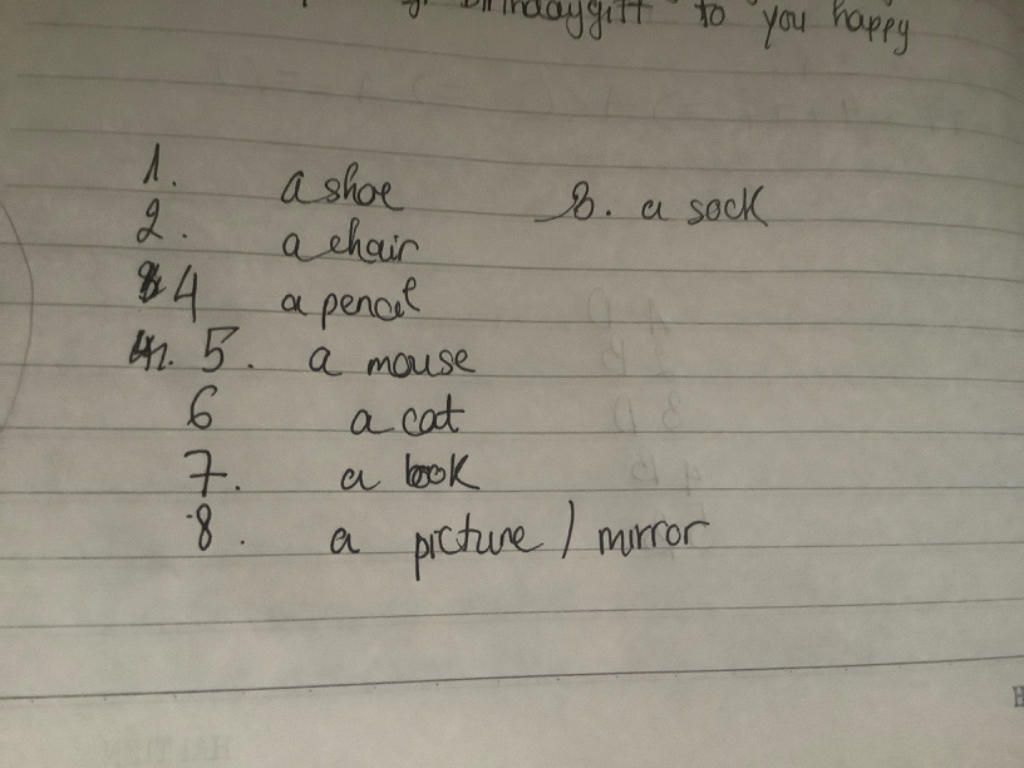 birthdaygift to you happy
1. a shoe
8. a sock
2. a chair
4 a pencil
5. a mouse
6 a cat
7. a book
8. a picture / mirror